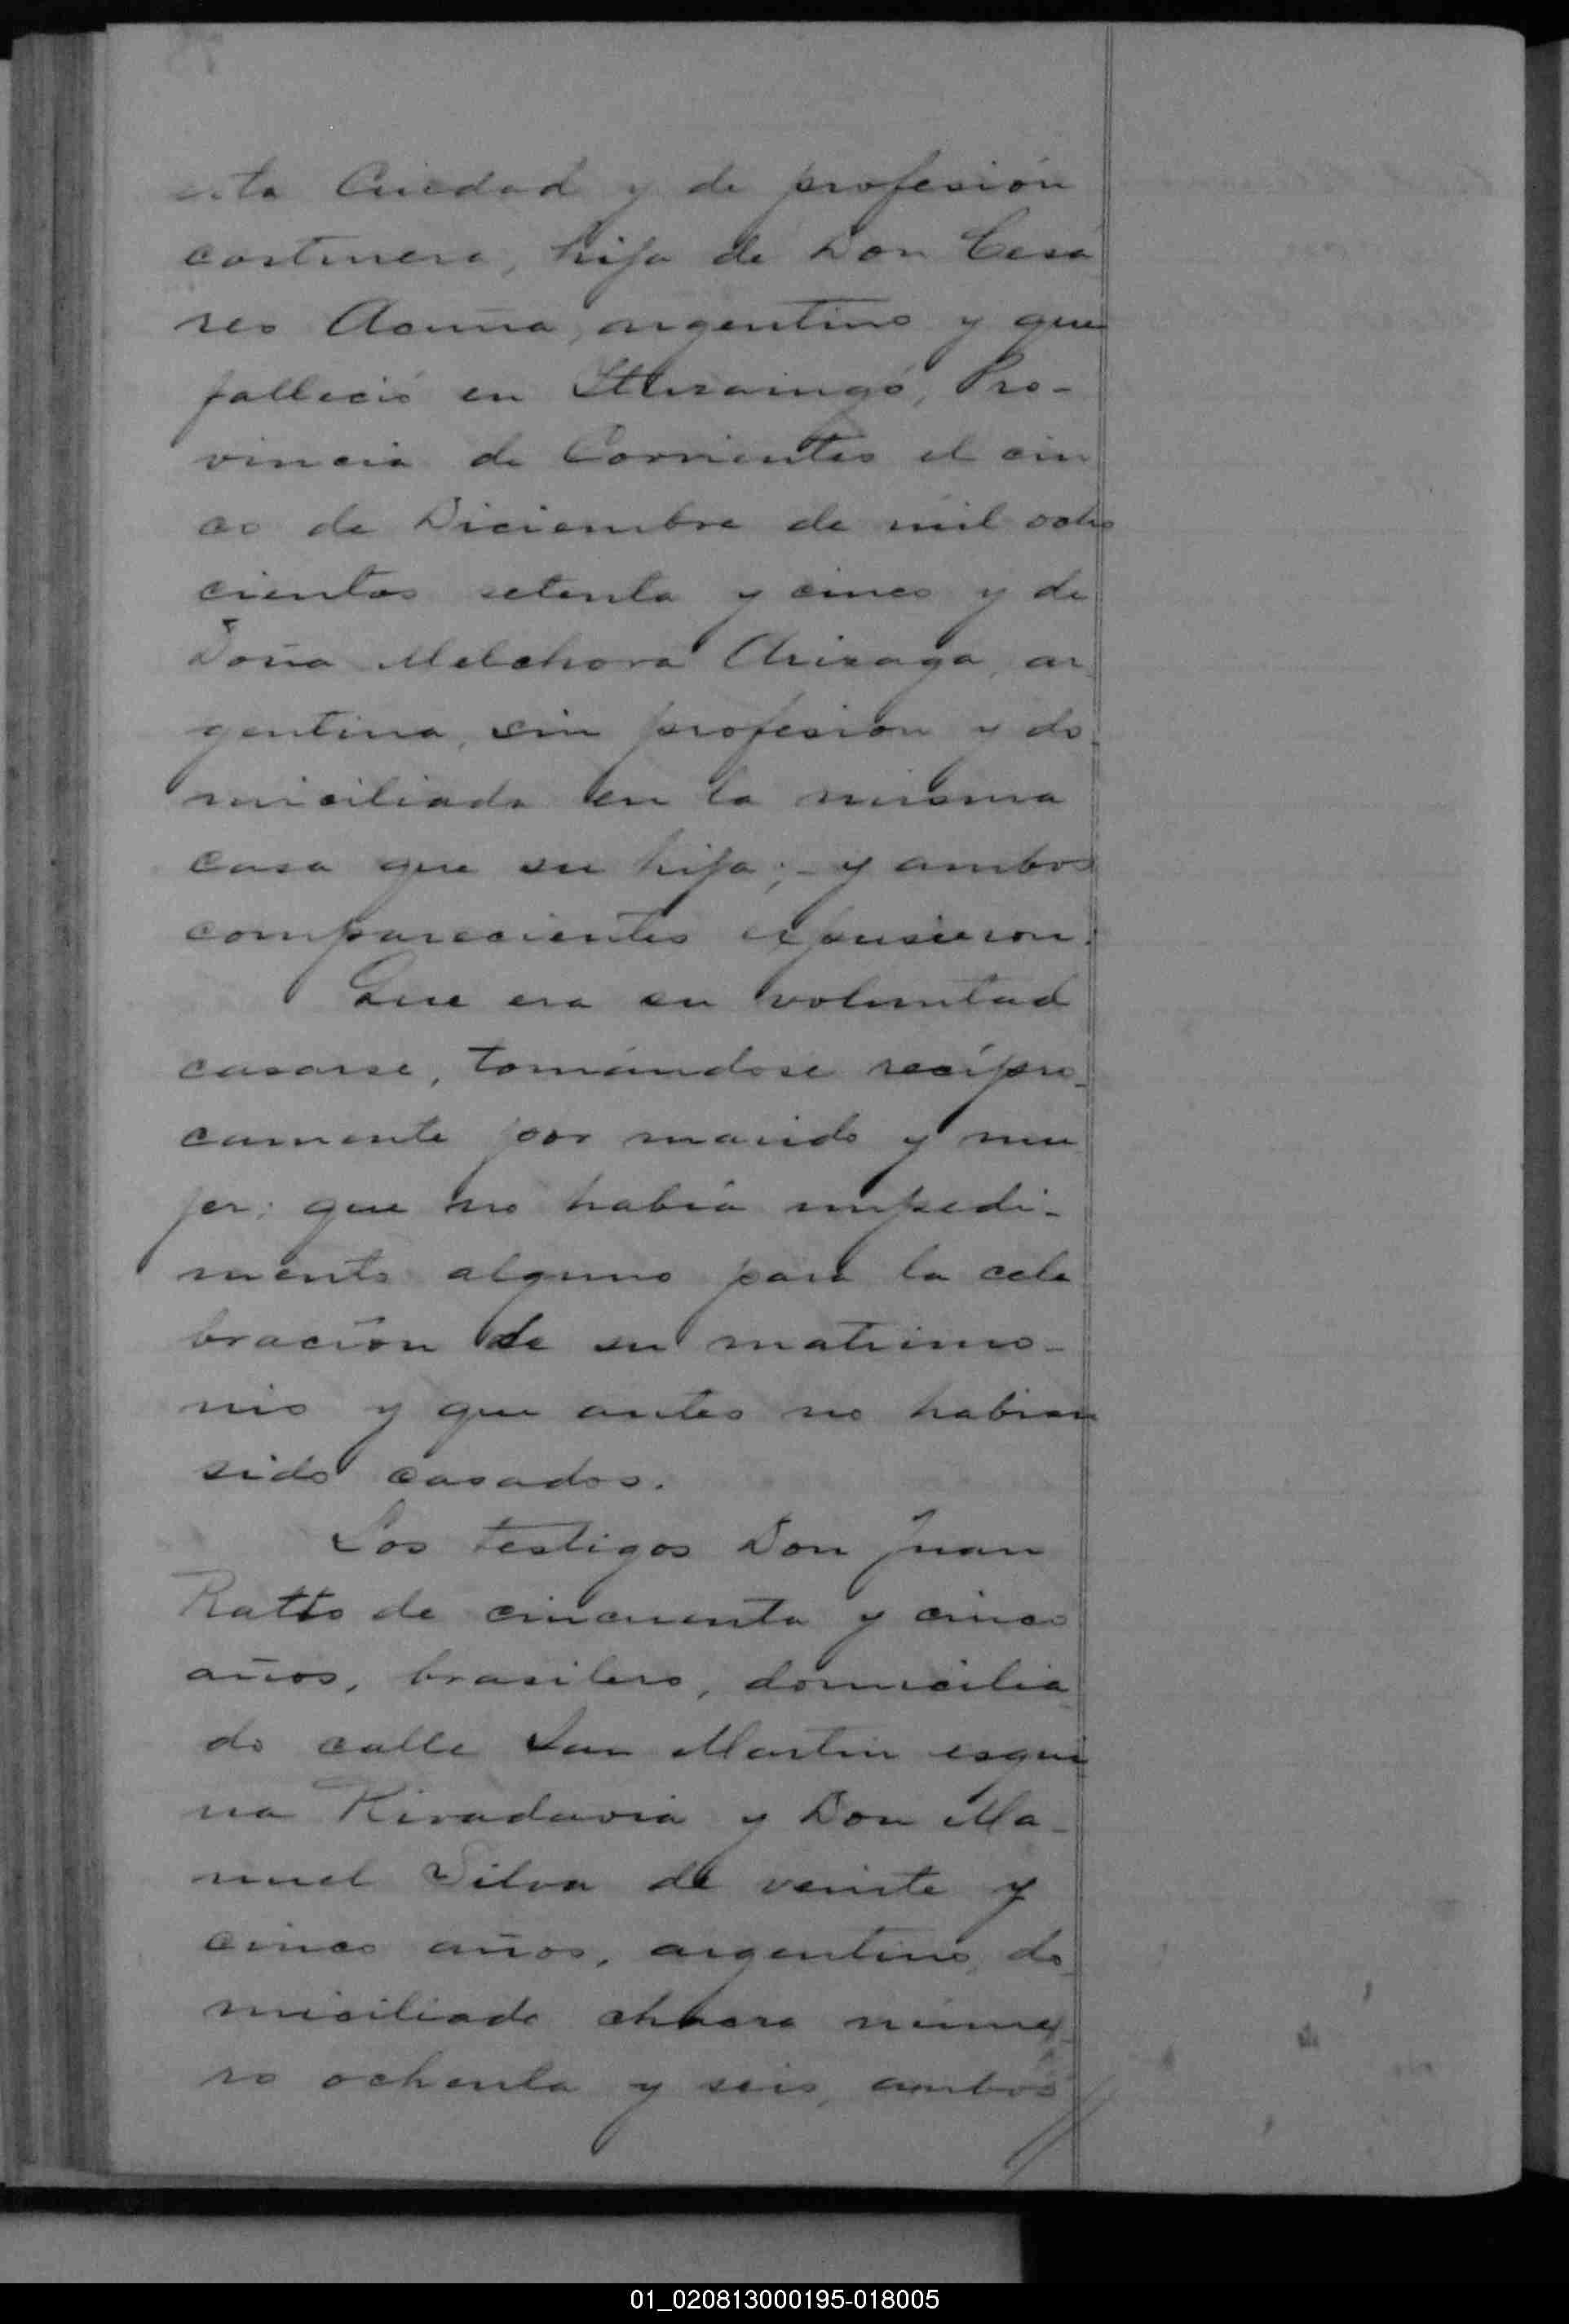 esta Ciudad y de profesión
costurera, hija de Don Cesá
reo Acuña, argentino y que
falleció en Ituzaingó, Pro-
vincia de Corrientes el cin
co de Diciembre de mil ocho
cientos setenta y cinco y de
Doña Melchora Arizaga, ar
gentina, sin profesion y do-
miciliada en la misma
casa que su hija; - y ambos
comparecientes expusieron:
Que era su voluntad
casarse, tomándose recípro-
camente por marido y mu
jer; que no había impedi-
mento alguno para la cele
bración de su matrimo-
nio y que antes no habian
sido casados.
Los testigos Don Juan
Ratto de cincuenta y cinco
años, brasilero, domicilia-
do calle San Martin esqui
na Rivadavia y Don Ma-
nuel Silva de veinte y
cinco años, argentino, do-
miciliado chacra núme-
ro ochenta y seis, ambos
01_020813000195-018005